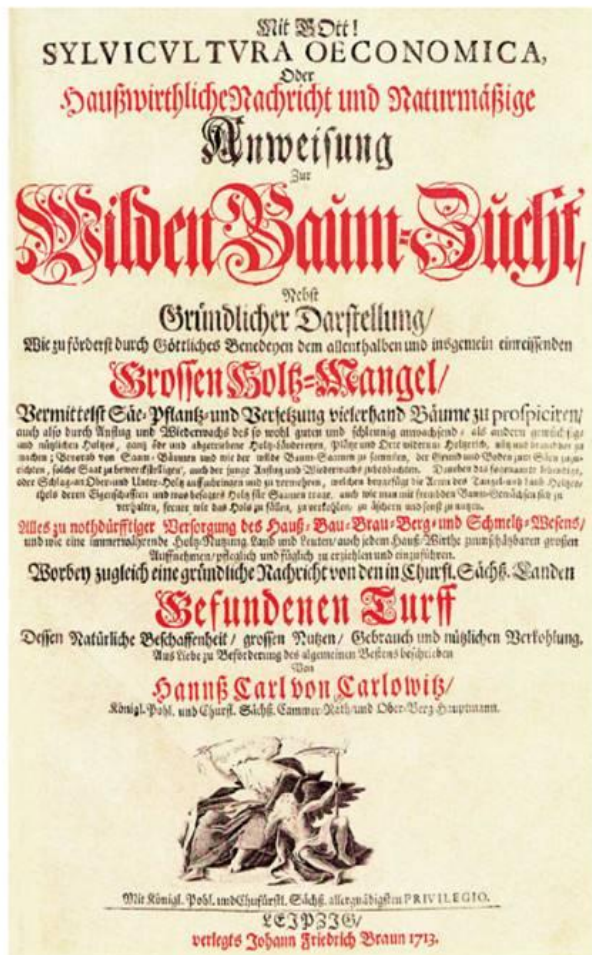 Mit GOtt!
SYLVICVLTVRA OECONOMICA,
Oder
Haußwirthliche Nachricht und Naturmäßige
Anweisung
Zur
Wilden Baum-Zucht,
Nebst
Gründlicher Darstellung/
Wie zu förderst durch Göttliches Benedeyen dem allenthalben und insgemein einreissenden
Grossen Holtz-Mangel/
Vermittelst Säe-Pflantz-und Versetzung vielerhand Bäume zu prospiciren/
auch also durch Anflug und Wiederwachs des so wohl guten und schleunig anwachsend, als andern
und nützlichen Holtzes, gantz öde und abgetriebene Holtz-Ländereyen, Plätze und Orte wiederum Holtzreich, nütz und brauchbar zu
machen; Bevorab von Saam-Bäumen und wie der wilde Baum-Saamen zu sammlen, der Grund und Boden zum Säen zuzu-
richten, solche Saat zu bewerckstelligen, auch der junge Anflug und Wiederwachs zu beobachten. Daneben das sogenannte lebendige,
oder Schlag-an Ober-und Unter-Holtz auffzubringen und zu vermehren, welchen beygefügt die Arten des Tangel-und Laub-Holtzes,
theils deren Eigenschafften und was besagtes Holtz für Saamen trage, auch wie man mit frembden Baum-Gewächsen sich zu
verhalten, ferner wie das Holtz zu fällen, zu verkohlen, zu äschern und sonst zu nutzen.
Alles zu nothdürfftiger Versorgung des Hauß-Bau-Brau-Berg-und Schmeltz-Wesens/
und wie eine immerwährende Holtz-Nutzung, Land und Leuten, auch jedem Hauß-Wirthe zu unschätzbaren grossen
Auffnehmen/pfleglich und füglich zu erziehlen und einzuführen.
Worbey zugleich eine gründliche Nachricht von den in Churfl. Sächß. Landen
Gefundenen Turff
Dessen Natürliche Beschaffenheit/ grossen Nutzen/ Gebrauch und nützlichen Verkohlung.
Aus Liebe zu Beförderung des algemeinen Bestens beschrieben
Von
Hannß Carl von Carlowitz/
Königl. Pohl. und Churfl. Sächß. Cammer-Rath und Ober-Berg-Hauptmann.
Mit Königl. Pohl. und Chufürstl. Sächß. allergnädigsten PRIVILEGIO.
LEIPZIG/
verlegts Johann Friedrich Braun 1713.